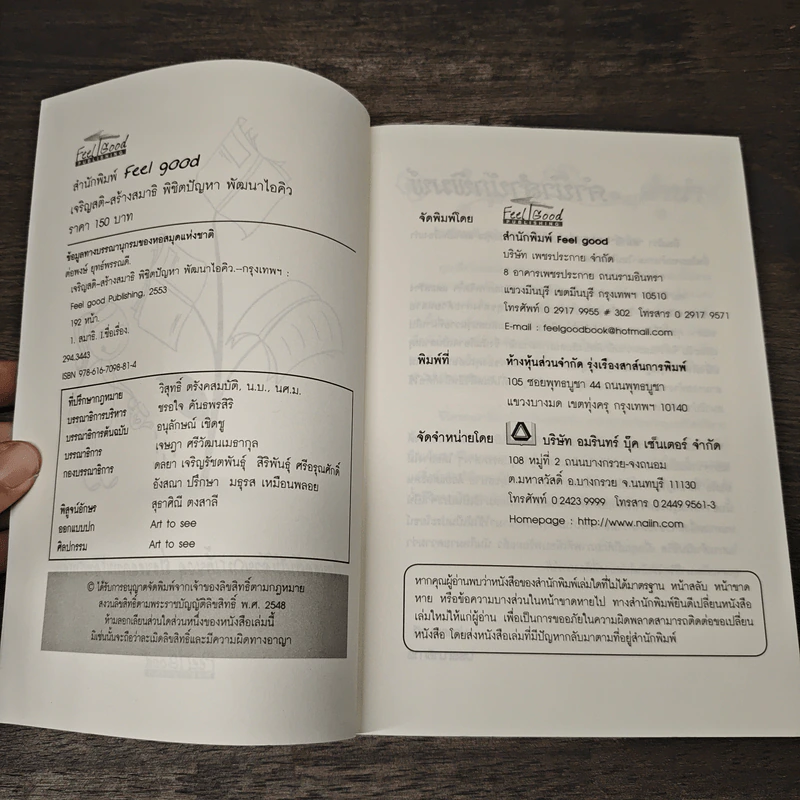 Feel Good
PUBLISHING
สำนักพิมพ์ Feel good
เจริญสติ-สร้างสมาธิ พิชิตปัญหา พัฒนาไอคิว
ราคา 150 บาท
ข้อมูลทางบรรณานุกรมของหอสมุดแห่งชาติ
ต่อพงษ์ ยุทธ์พรรณดี.
เจริญสติ-สร้างสมาธิ พิชิตปัญหา พัฒนาไอคิว.--กรุงเทพฯ :
Feel good Publishing, 2553
192 หน้า.
1. สมาธิ. I.ชื่อเรื่อง.
294.3443
ISBN 978-616-7098-81-4
ที่ปรึกษากฎหมาย วิสุทธิ์ ตรังคสมบัติ, น.บ., นศ.ม.
บรรณาธิการบริหาร ชรอใจ คันธพรสิริ
บรรณาธิการต้นฉบับ อนุลักษณ์ เชิดชู
บรรณาธิการ เจษฎา ศรีวัฒนเมธากุล
กองบรรณาธิการ ดลยา เจริญรัชตพันธุ์ สิริพันธุ์ ศรีอรุณศักดิ์
อังสณา ปรึกษา มธุรส เหมือนพลอย
พิสูจน์อักษร สุธาศิณี ตงสาลี
ออกแบบปก Art to see
ศิลปกรรม Art to see
© ได้รับการอนุญาตจัดพิมพ์จากเจ้าของลิขสิทธิ์ตามกฎหมาย
สงวนลิขสิทธิ์ตามพระราชบัญญัติลิขสิทธิ์ พ.ศ. 2548
ห้ามลอกเลียนส่วนใดส่วนหนึ่งของหนังสือเล่มนี้
มิเช่นนั้นจะถือว่าละเมิดลิขสิทธิ์และมีความผิดทางอาญา
จัดพิมพ์โดย Feel Good
PUBLISHING
สำนักพิมพ์ Feel good
บริษัท เพชรประกาย จำกัด
8 อาคารเพชรประกาย ถนนรามอินทรา
แขวงมีนบุรี เขตมีนบุรี กรุงเทพฯ 10510
โทรศัพท์ 0 2917 9955 # 302 โทรสาร 0 2917 9571
E-mail : feelgoodbook@hotmail.com
พิมพ์ที่ ห้างหุ้นส่วนจำกัด รุ่งเรืองสาส์นการพิมพ์
105 ซอยพุทธบูชา 44 ถนนพุทธบูชา
แขวงบางมด เขตทุ่งครุ กรุงเทพฯ 10140
จัดจำหน่ายโดย บริษัท อมรินทร์ บุ๊ค เซ็นเตอร์ จำกัด
108 หมู่ที่ 2 ถนนบางกรวย-จงถนอม
ต.มหาสวัสดิ์ อ.บางกรวย จ.นนทบุรี 11130
โทรศัพท์ 0 2423 9999 โทรสาร 0 2449 9561-3
Homepage : http://www.naiin.com
หากคุณผู้อ่านพบว่าหนังสือของสำนักพิมพ์เล่มใดที่ไม่ได้มาตรฐาน หน้าสลับ หน้าขาด
หาย หรือข้อความบางส่วนในหน้าขาดหายไป ทางสำนักพิมพ์ยินดีเปลี่ยนหนังสือ
เล่มใหม่ให้แก่ผู้อ่าน เพื่อเป็นการขออภัยในความผิดพลาดสามารถติดต่อขอเปลี่ยน
หนังสือ โดยส่งหนังสือเล่มที่มีปัญหากลับมาตามที่อยู่สำนักพิมพ์